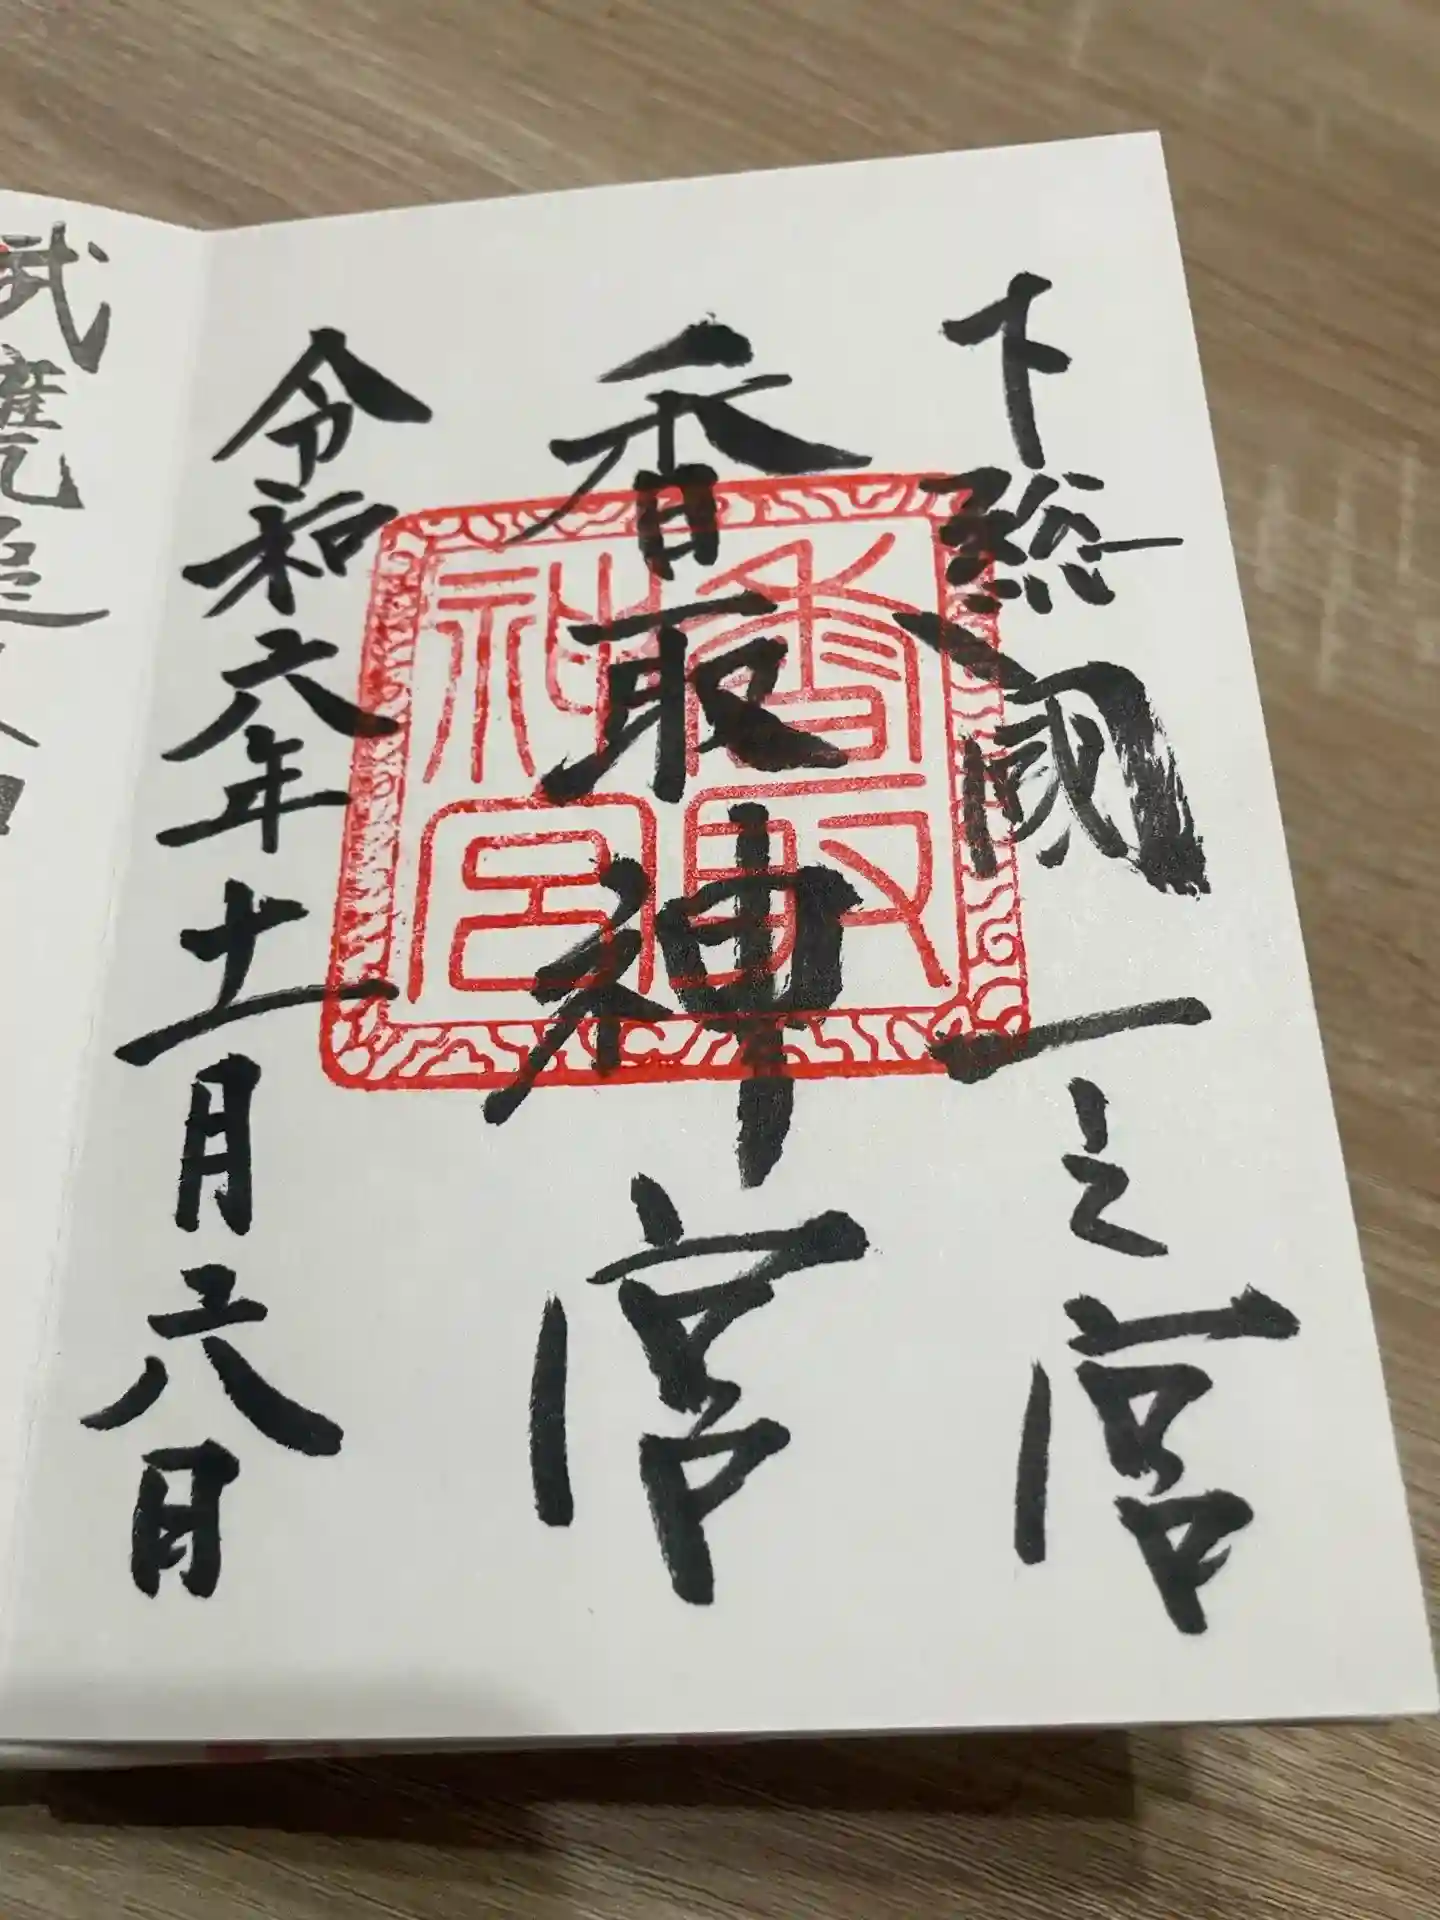 下総國一之宮
香取神宮
香取
神宮
令和六年十一月六日
武甕